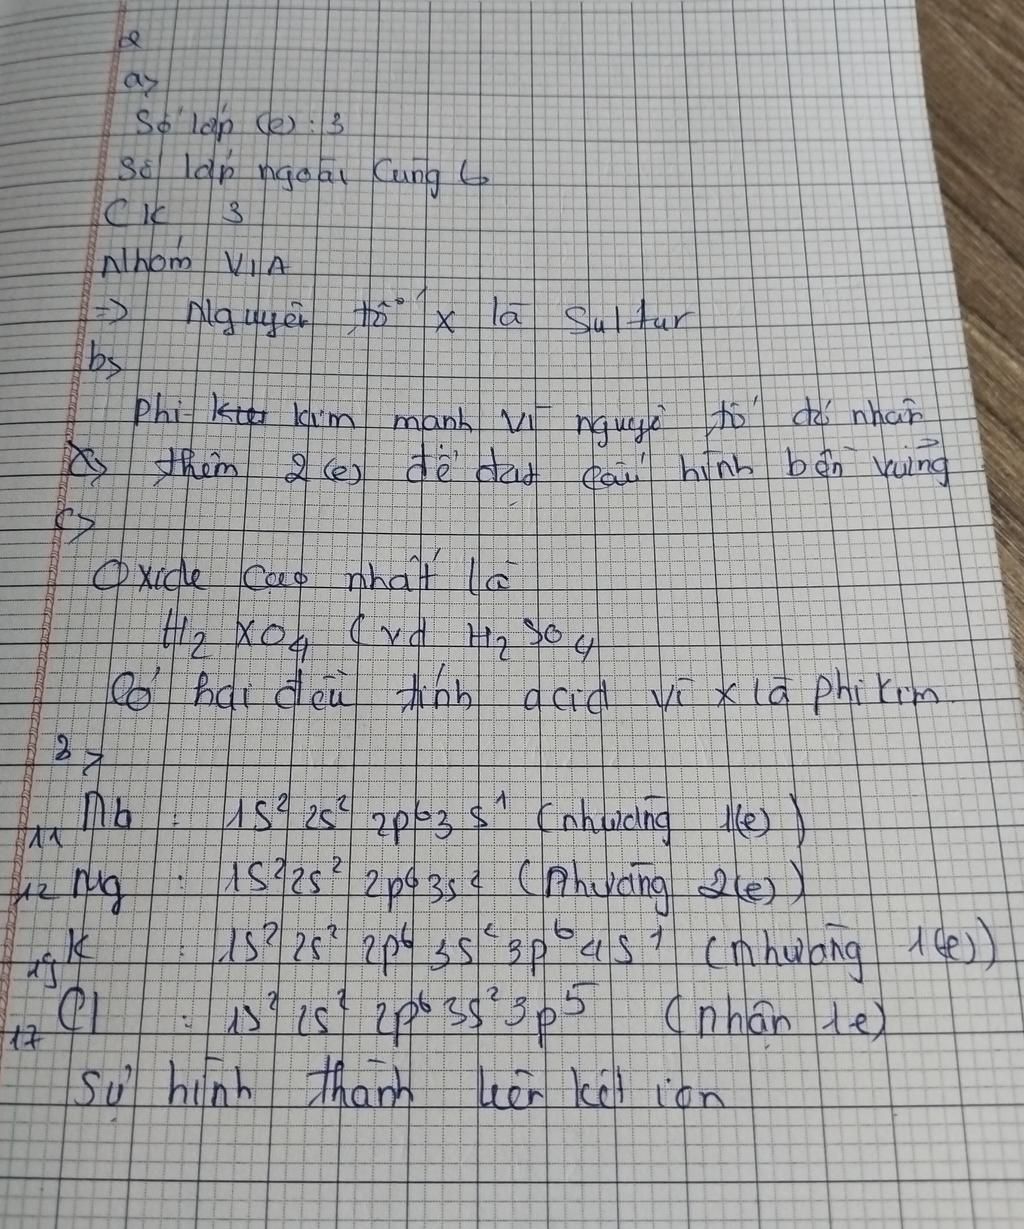 2
a>
Số lớp (e) : 3
Số lớp ngoài cùng 6
CK 3
Nhóm VIA
=> Nguyên tố X là Sultur
b>
phi kim mạnh vì nguyê tố dó nhận
thêm 2(e) để đạt cấu hình bền vững
c>
Oxide cao nhất là
H₂XO₄ (vd H₂SO₄
Có hai đều tính acid vì X là phi kim
3>
₁₁Na : 1S² 2S² 2p⁶3s¹ (nhường 1(e))
₁₂Mg : 1S²2s² 2p⁶3s² (Nhường 2(e))
₁₉K : 1S² 2S² 2p⁶ 3s² 3p⁶4s¹ (nhường 1(e))
₁₇Cl : 1s² 2s² 2p⁶3s²3p⁵ (nhận 1e)
Sự hình thành liên kết ion